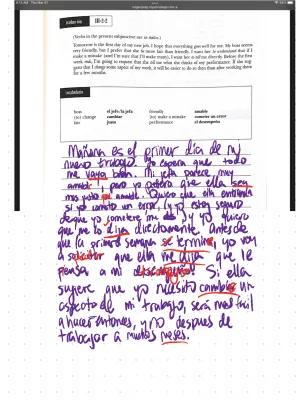 (Verbs in the present subjunctive are in italics.)
Tomorrow is the first day of my new job. I hope that everything goes well for me. My boss seems
very friendly, but I prefer that she be more fair than friendly. I want her to understand that if I
make a mistake (and I'm sure that I'll make many), I want her to tell me directly. Before the first
week ends, I'm going to request that she tell me what she thinks of my performance. If she sug-
gests that I change some aspect of my work, it will be easier to do so then than after working there
for a few months.
vocabulario
boss el jefe/la jefa friendly amable
(to) change cambiar (to) make a mistake cometer un error
fair justo performance el desempeño
Mañana es el primer día de mi
nuevo trabajo. Yo espero que todo
me vaya bien. Mi jefa parece muy
amable, pero yo prefiero que ella sea
más justa que amable. Quiero que ella entienda
si yo cometo un error, (y yo estoy seguro
de que yo cometeré más) y yo quiero
que me lo diga directamente. Antes de
que la primera semana se termine, yo voy
a solicitar que ella me diga que le
pensar a mi desempeño. Si ella
sugere que yo necesito cambiar un
aspecto de mi trabajo, será más fácil
a hacer entonces, y no despues de
trabajar a muchos meses.